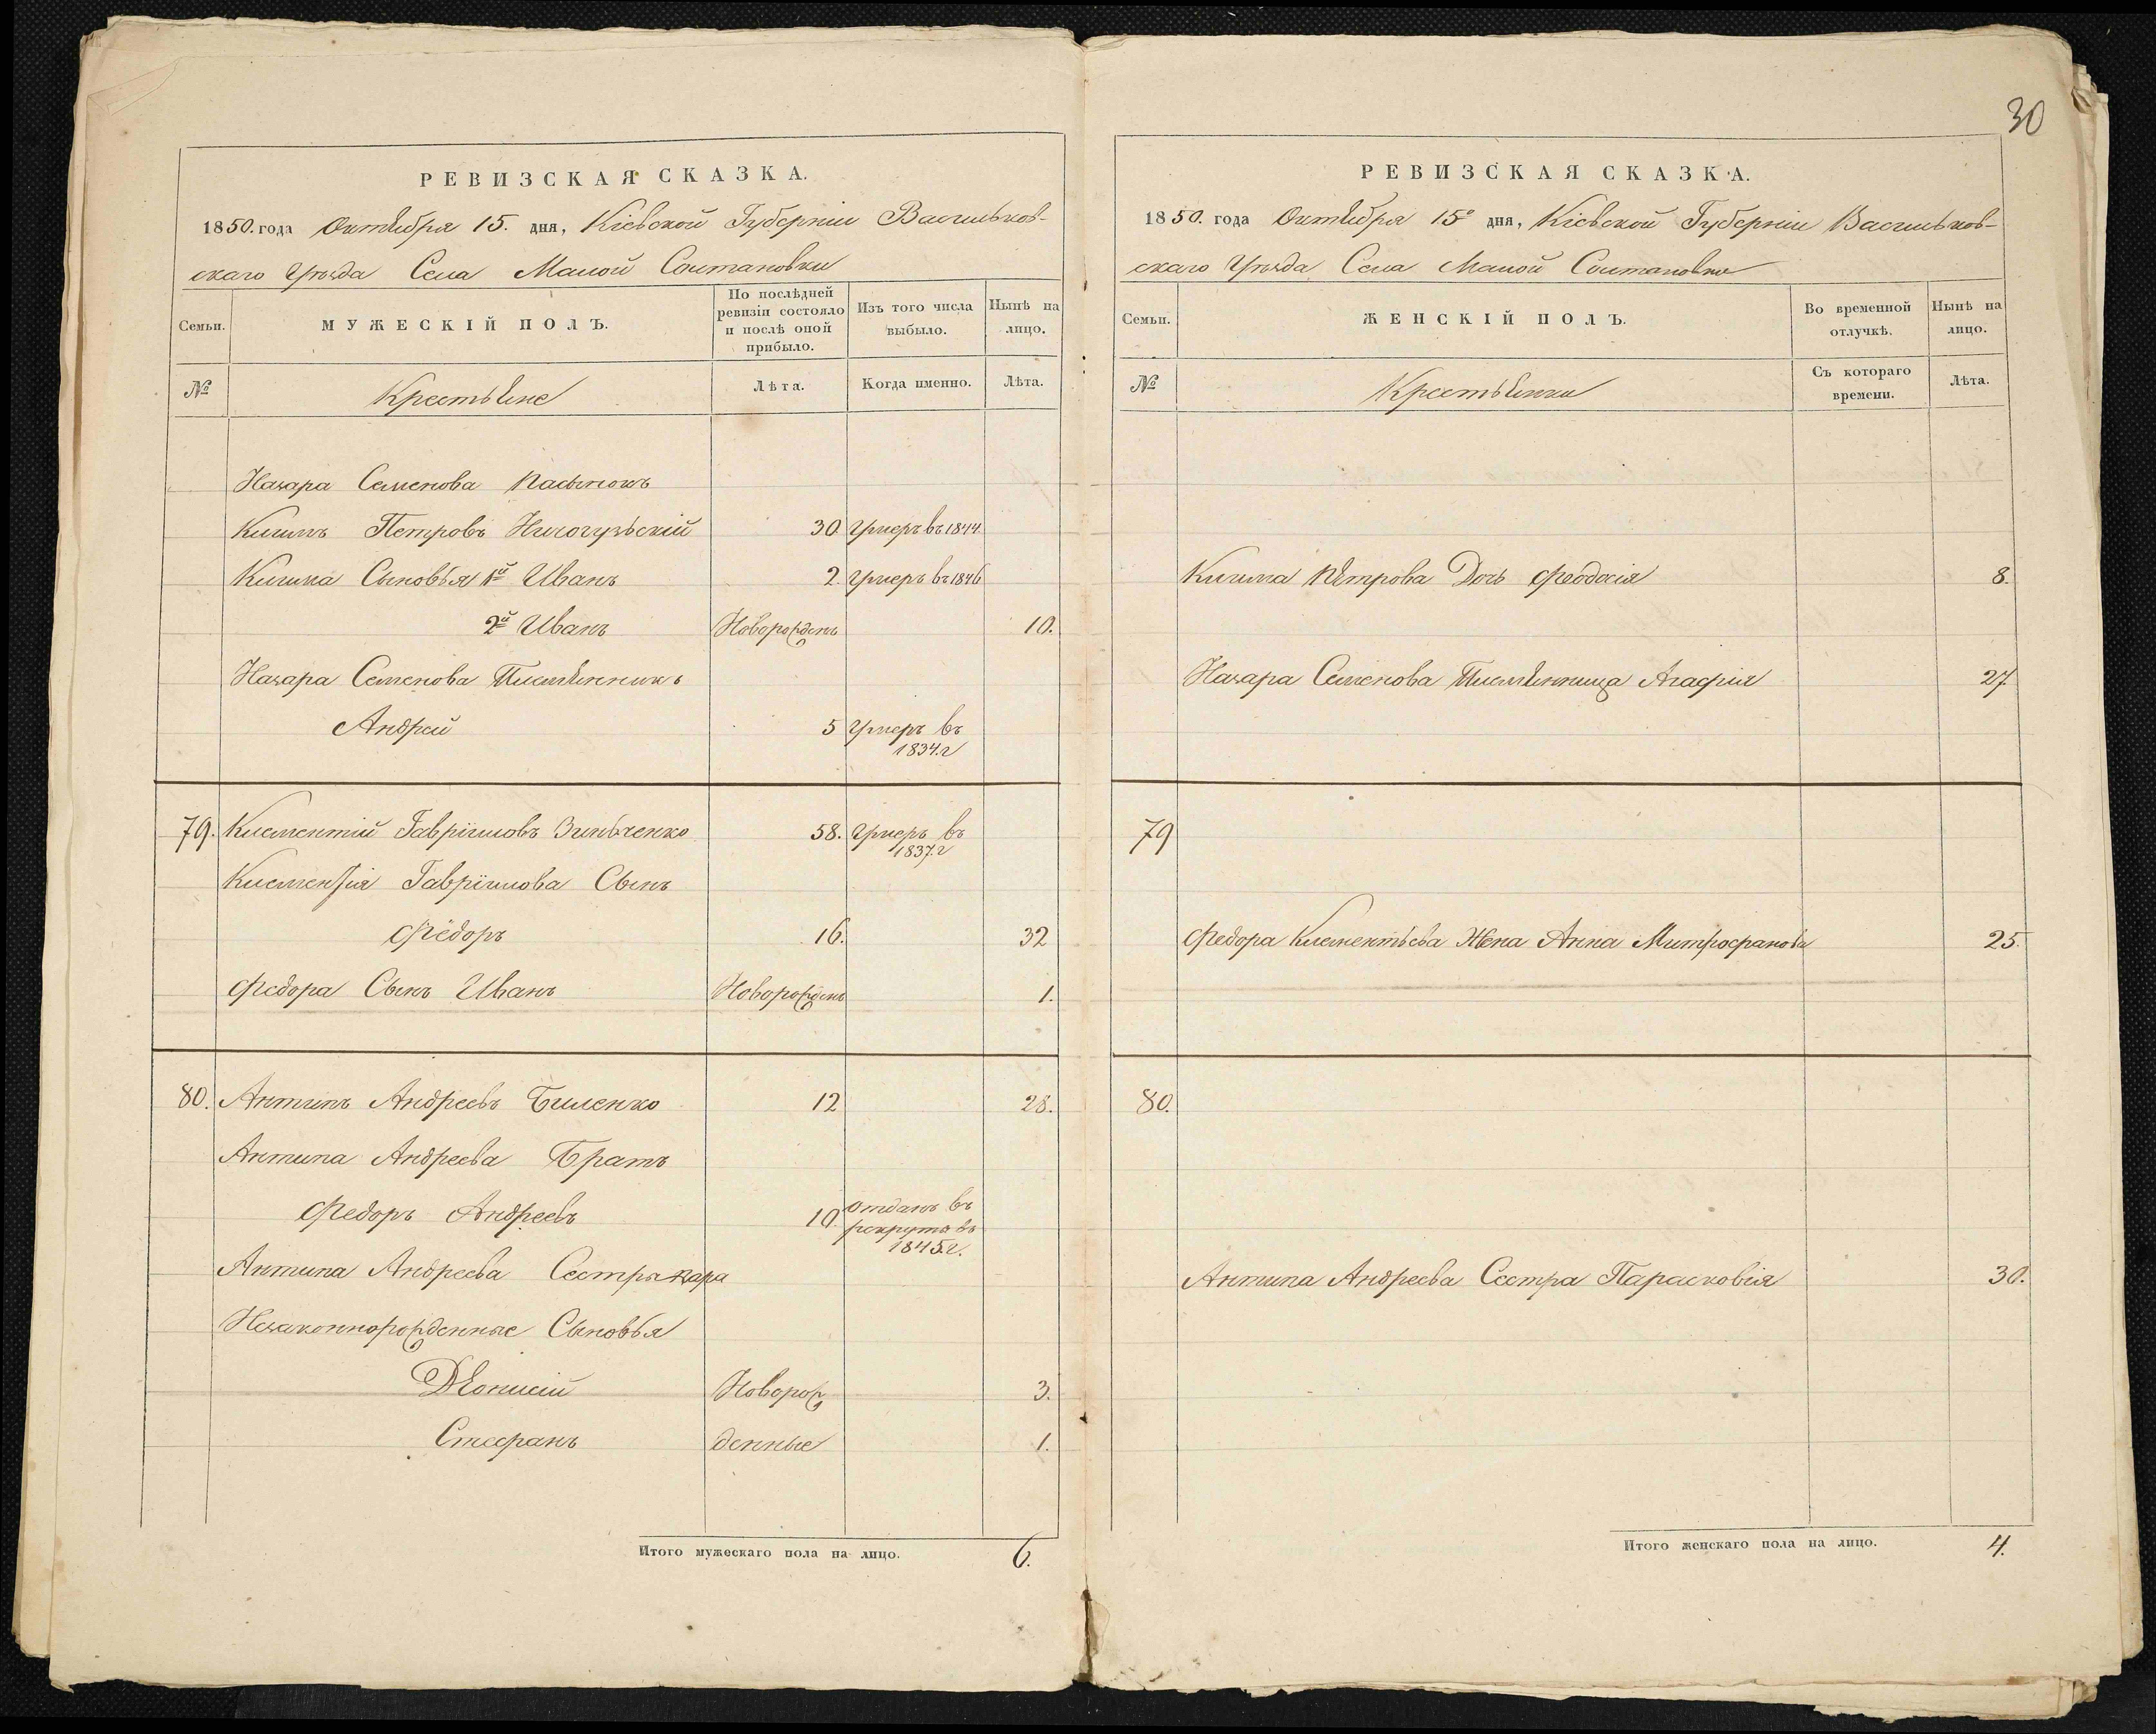 РЕВИЗСКАЯ СКАЗКА.
1850. года Октября 15. дня, Кіевской Губерніи Васильков-
скаго Уѣзда Села Малой Солтановки
Семьи.
МУЖЕСКІЙ ПОЛЪ.
По послѣдней ревизіи состояло и послѣ оной прибыло.
Изъ того числа выбыло.
Нынѣ на лицо.
№
Крестьяне
Лѣта.
Когда именно.
Лѣта.
Назара Семенова Пасынокъ
Климъ Петровъ 30. Умеръ въ 1844.
Клима Сыновья 1й Иванъ 2. Умеръ въ 1846
2й Иванъ Новорожденъ 10.
Назара Семенова Племянникъ
Андрей 5 Умеръ въ
1834.г
79. Климентій Гавріиловъ Зинченко 58. Умеръ въ
1837.г
Климентія Гавріилова Сынъ
Федоръ 16. 32
Федора Сынъ Иванъ Новорожденъ 1.
80. Антипъ Андреевъ Биленко 12 28.
Антипа Андреева Братъ
Федоръ Андреевъ 10. отданъ въ
рекрута въ
1845.г.
Антипа Андреева Сестры
Незаконнорожденные Сыновья
Діонисій Новорож 3.
Стефанъ денные 1.
Итого мужескаго пола на лицо. 6.
30
РЕВИЗСКАЯ СКАЗКА.
1850. года Октября 15го дня, Кіевской Губерніи Васильков-
скаго Уѣзда Села Малой Солтановки
Семьи.
ЖЕНСКІЙ ПОЛЪ.
Во временной отлучкѣ.
Нынѣ на лицо.
№
Крестьянки
Съ котораго времени.
Лѣта.
Клима Петрова Дочь Феодосія 8.
Назара Семенова Племянница Агафія 27.
79
Федора Климентьева Жена Анна Митрофанова 25.
80.
Антипа Андреева Сестра Парасковія 30.
Итого женскаго пола на лицо. 4.